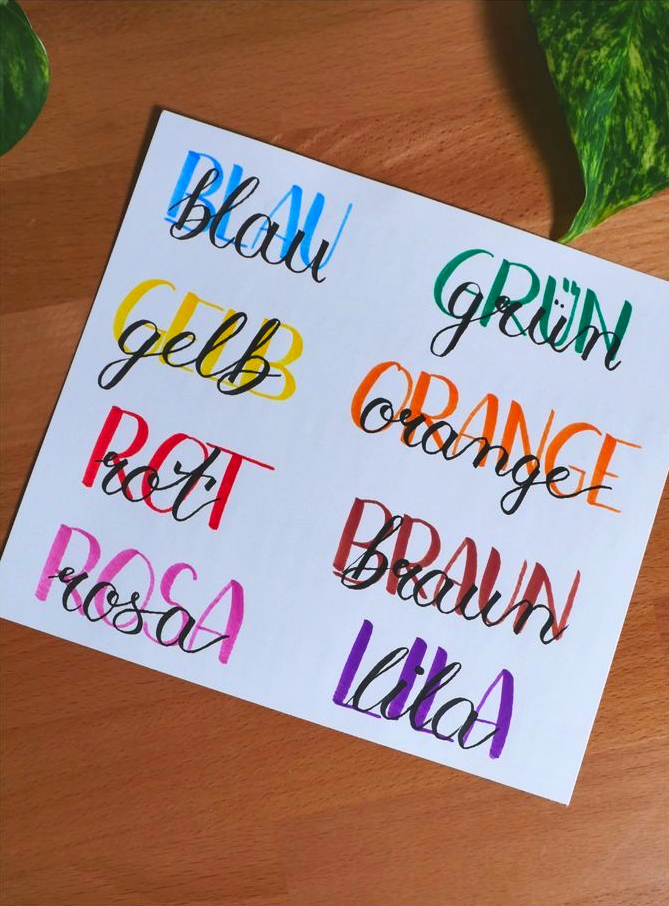 BLAU
blau
GELB
gelb
ROT
rot
ROSA
rosa
GRÜN
grün
ORANGE
orange
BRAUN
braun
LILA
lila